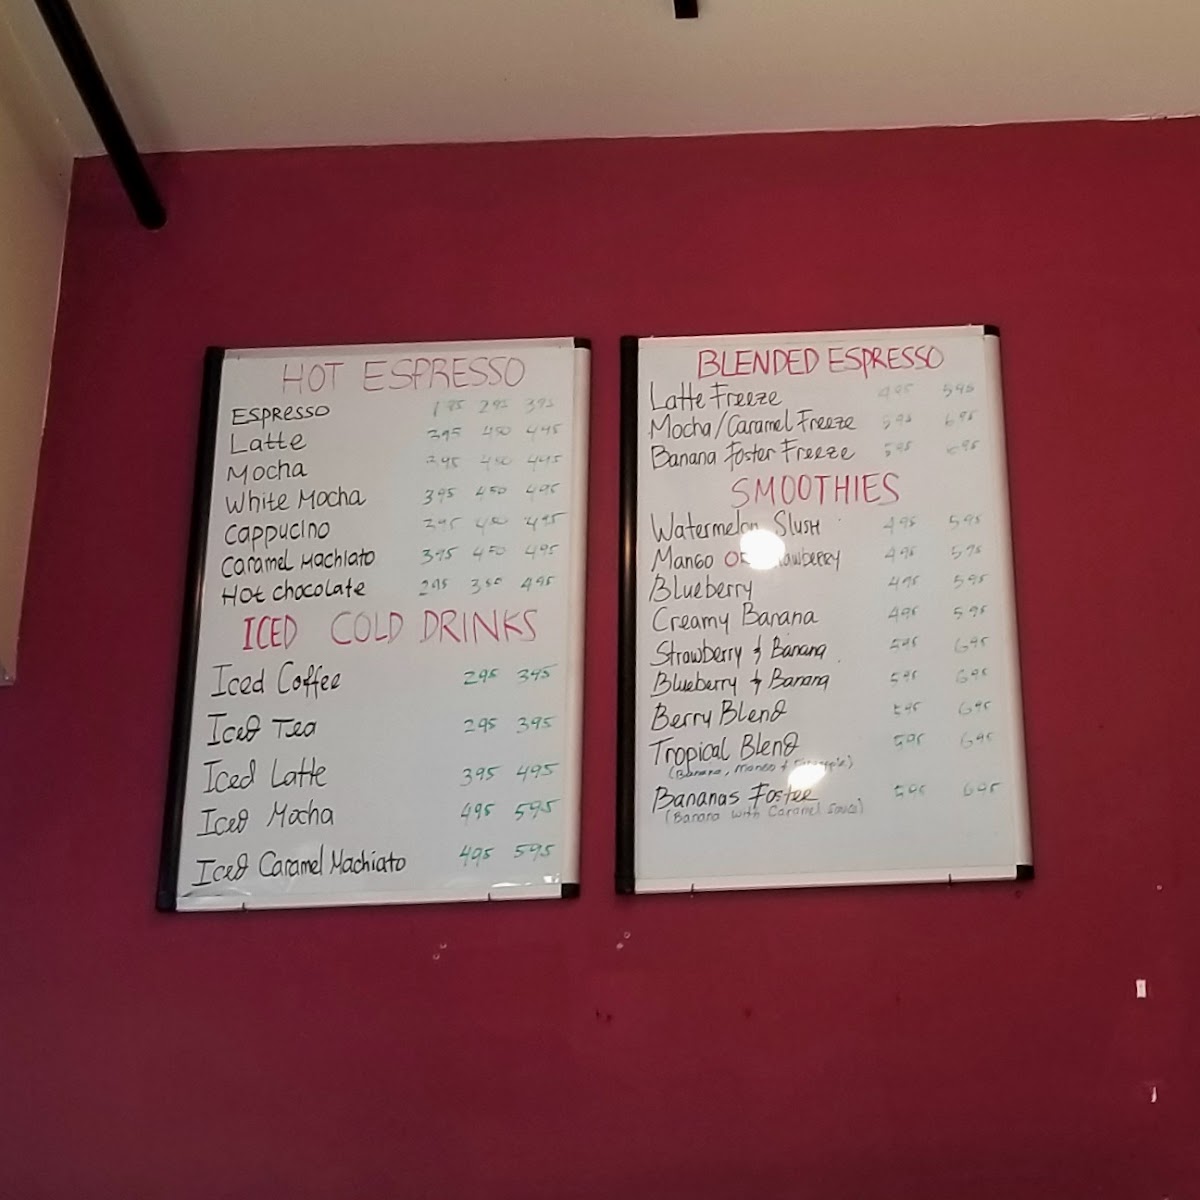 HOT ESPRESSO
ESPRESSO 195 295 395
Latte 395 450 495
Mocha 395 450 495
White Mocha 395 450 495
Cappucino 395 450 495
Caramel Machiato 395 450 495
Hot chocolate 295 350 495
ICED COLD DRINKS
Iced Coffee 295 395
Iced Tea 295 395
Iced Latte 395 495
Iced Mocha 495 595
Iced Caramel Machiato 495 595
BLENDED ESPRESSO
Latte Freeze 495 595
Mocha/Caramel Freeze 595 695
Banana Foster Freeze 595 695
SMOOTHIES
Watermelon Slush 495 595
Mango OR Strawberry 495 595
Blueberry 495 595
Creamy Banana 495 595
Strawberry & Banana 595 695
Blueberry & Banana 595 695
Berry Blend 595 695
Tropical Blend 595 695
(Banana, Mango &
Bananas Foster 595 695
(Banana with Caramel Sauce)